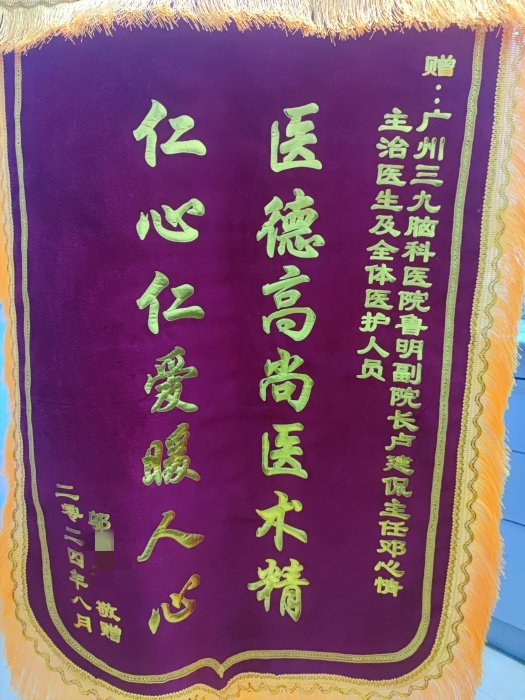 赠：广州三九脑科医院鲁明副院长卢建侃主任邓心情
主治医生及全体医护人员
医德高尚医术精
仁心仁爱暖人心
邹 敬赠
二零二四年八月